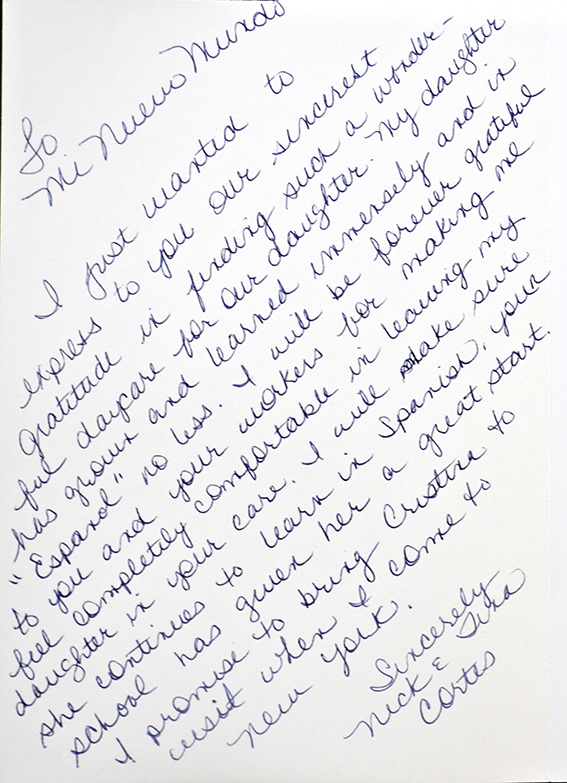 To
Mi Nuevo Mundo
I just wanted to
express to you our sincerest
gratitude in finding such a wonder-
ful daycare for our daughter. My daughter
has grown and learned immensely and in
"Espanol" no less. I will be forever grateful
to you and your workers for making me
feel completely comfortable in leaving my
daughter in your care. I will make sure
she continues to learn in Spanish, your
school has given her a great start.
I promise to bring Cristina to
visit when I come to
New York.
Sincerely
Nick & Tina
Cortes